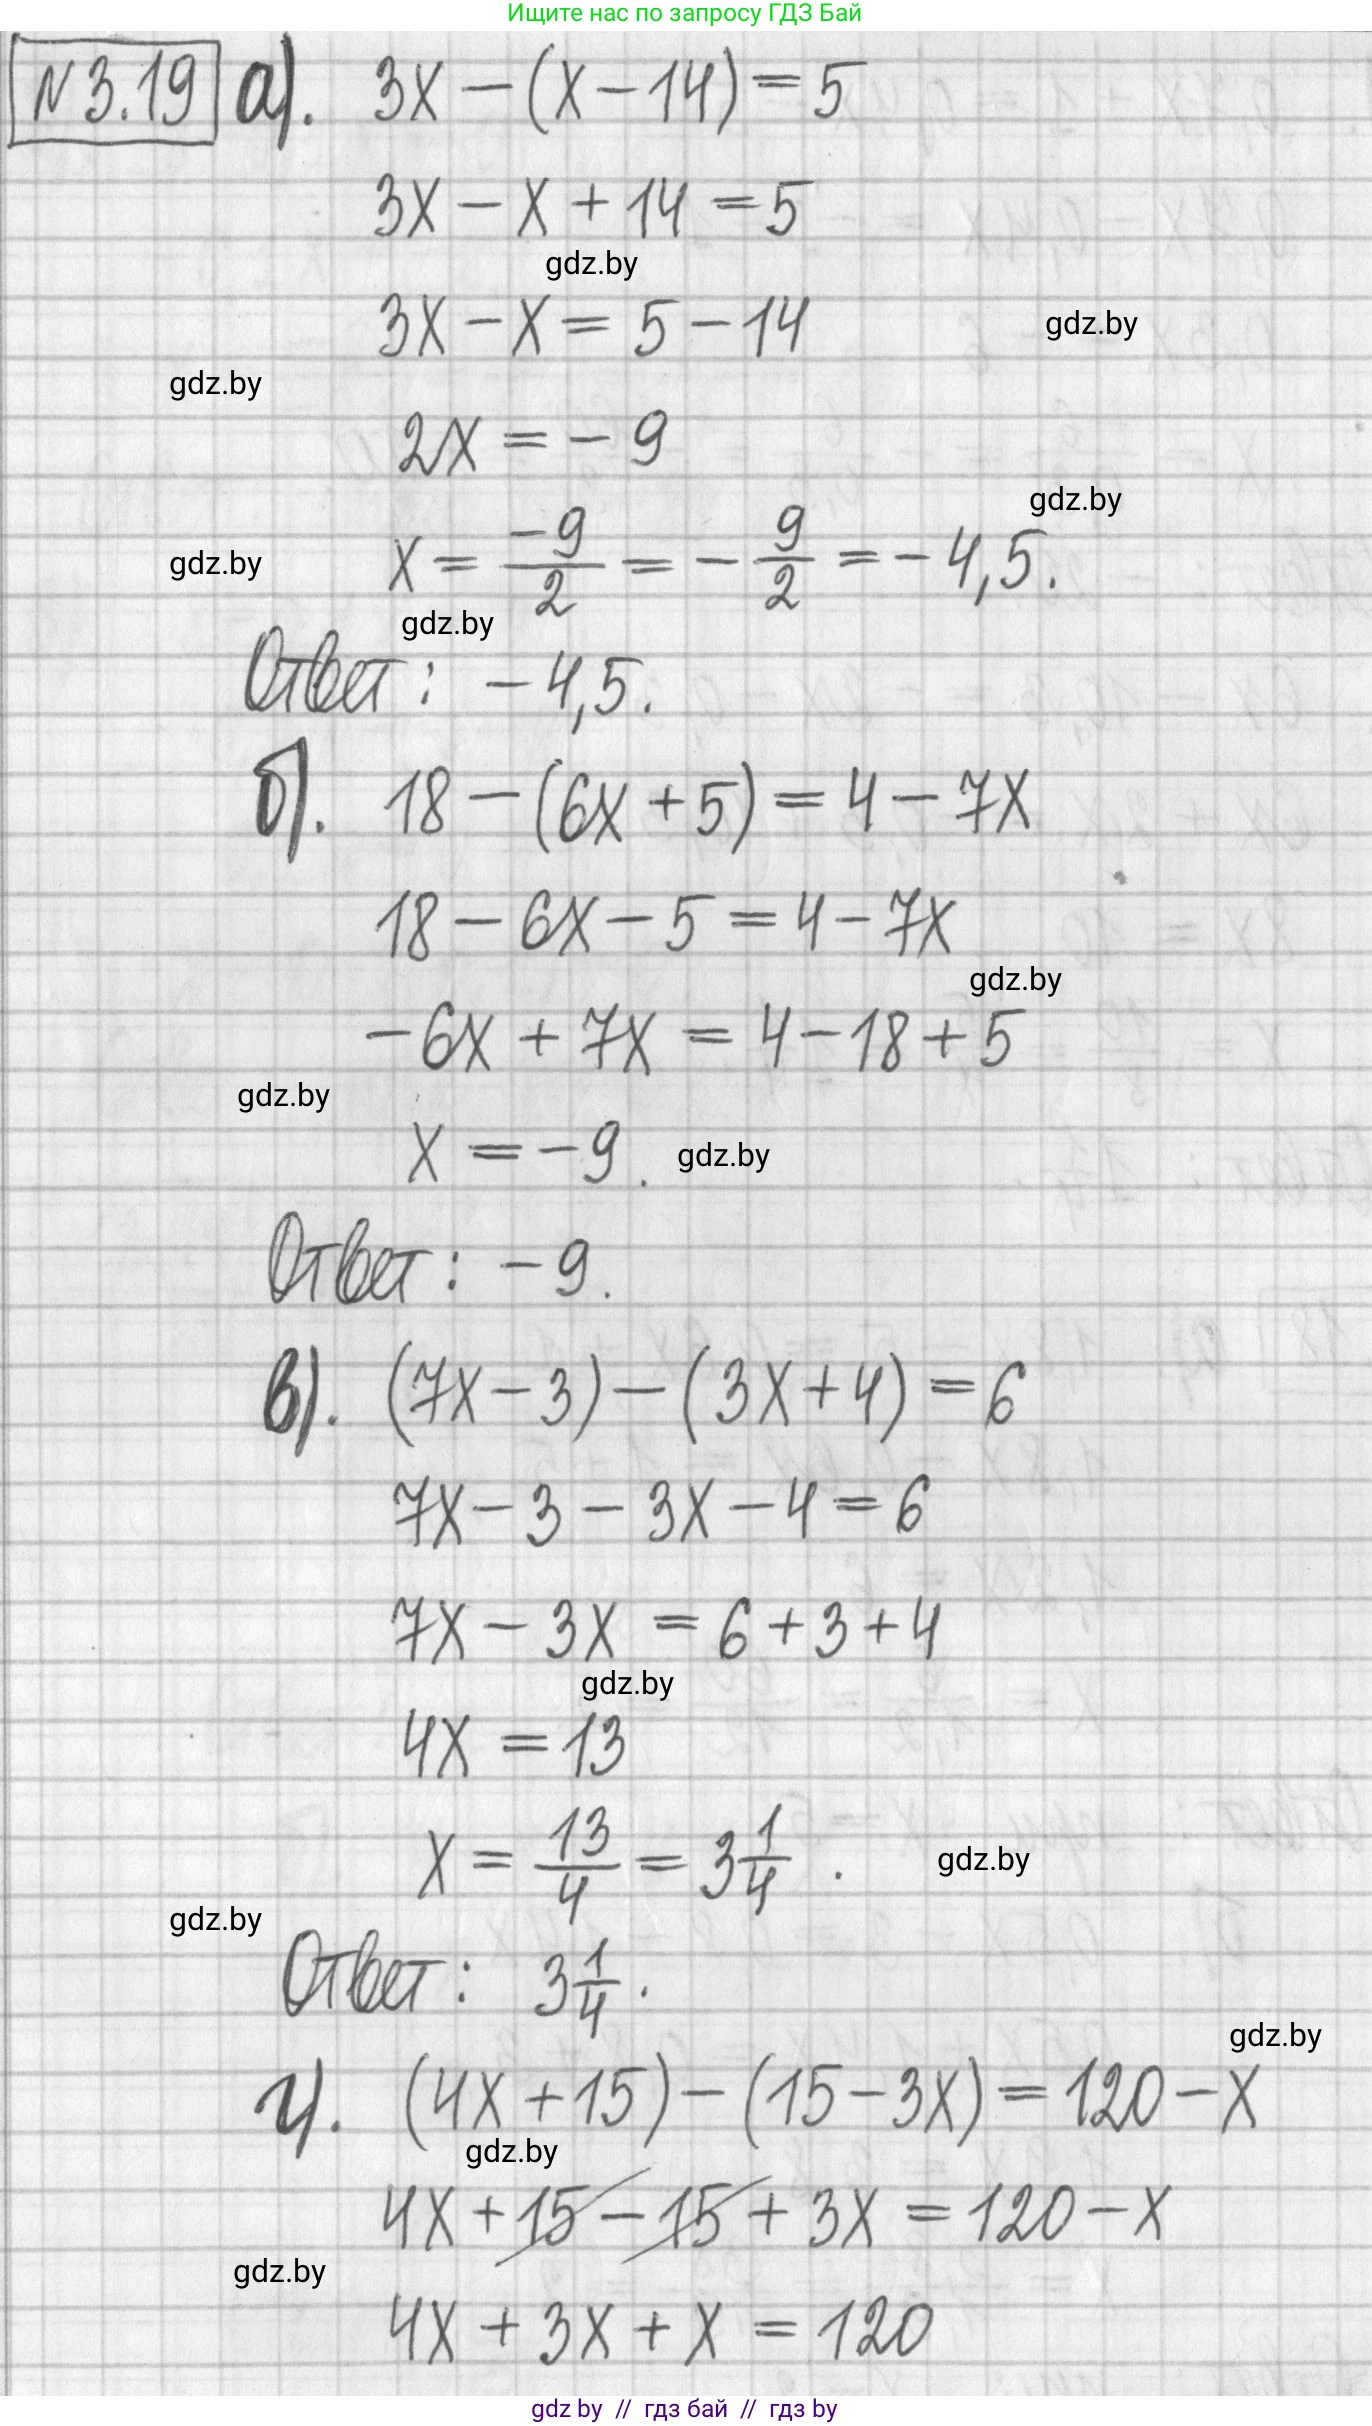 Ищите нас по запросу ГДЗ Бай
N3.19 а). 3x − (x − 14) = 5
3x − x + 14 = 5
gdz.by
3x − x = 5 − 14
gdz.by
gdz.by
2x = − 9
gdz.by
x = −9/2 = − 9/2 = − 4,5.
gdz.by
gdz.by
Ответ: − 4,5.
б). 18 − (6x + 5) = 4 − 7x
18 − 6x − 5 = 4 − 7x
gdz.by
− 6x + 7x = 4 − 18 + 5
gdz.by
x = − 9.
gdz.by
Ответ: − 9.
в). (7x − 3) − (3x + 4) = 6
7x − 3 − 3x − 4 = 6
7x − 3x = 6 + 3 + 4
gdz.by
4x = 13
x = 13/4 = 3 1/4.
gdz.by
gdz.by
Ответ: 3 1/4.
gdz.by
г). (4x + 15) − (15 − 3x) = 120 − x
gdz.by
4x + 15 − 15 + 3x = 120 − x
gdz.by
4x + 3x + x = 120
gdz by // гдз бай // гдз by